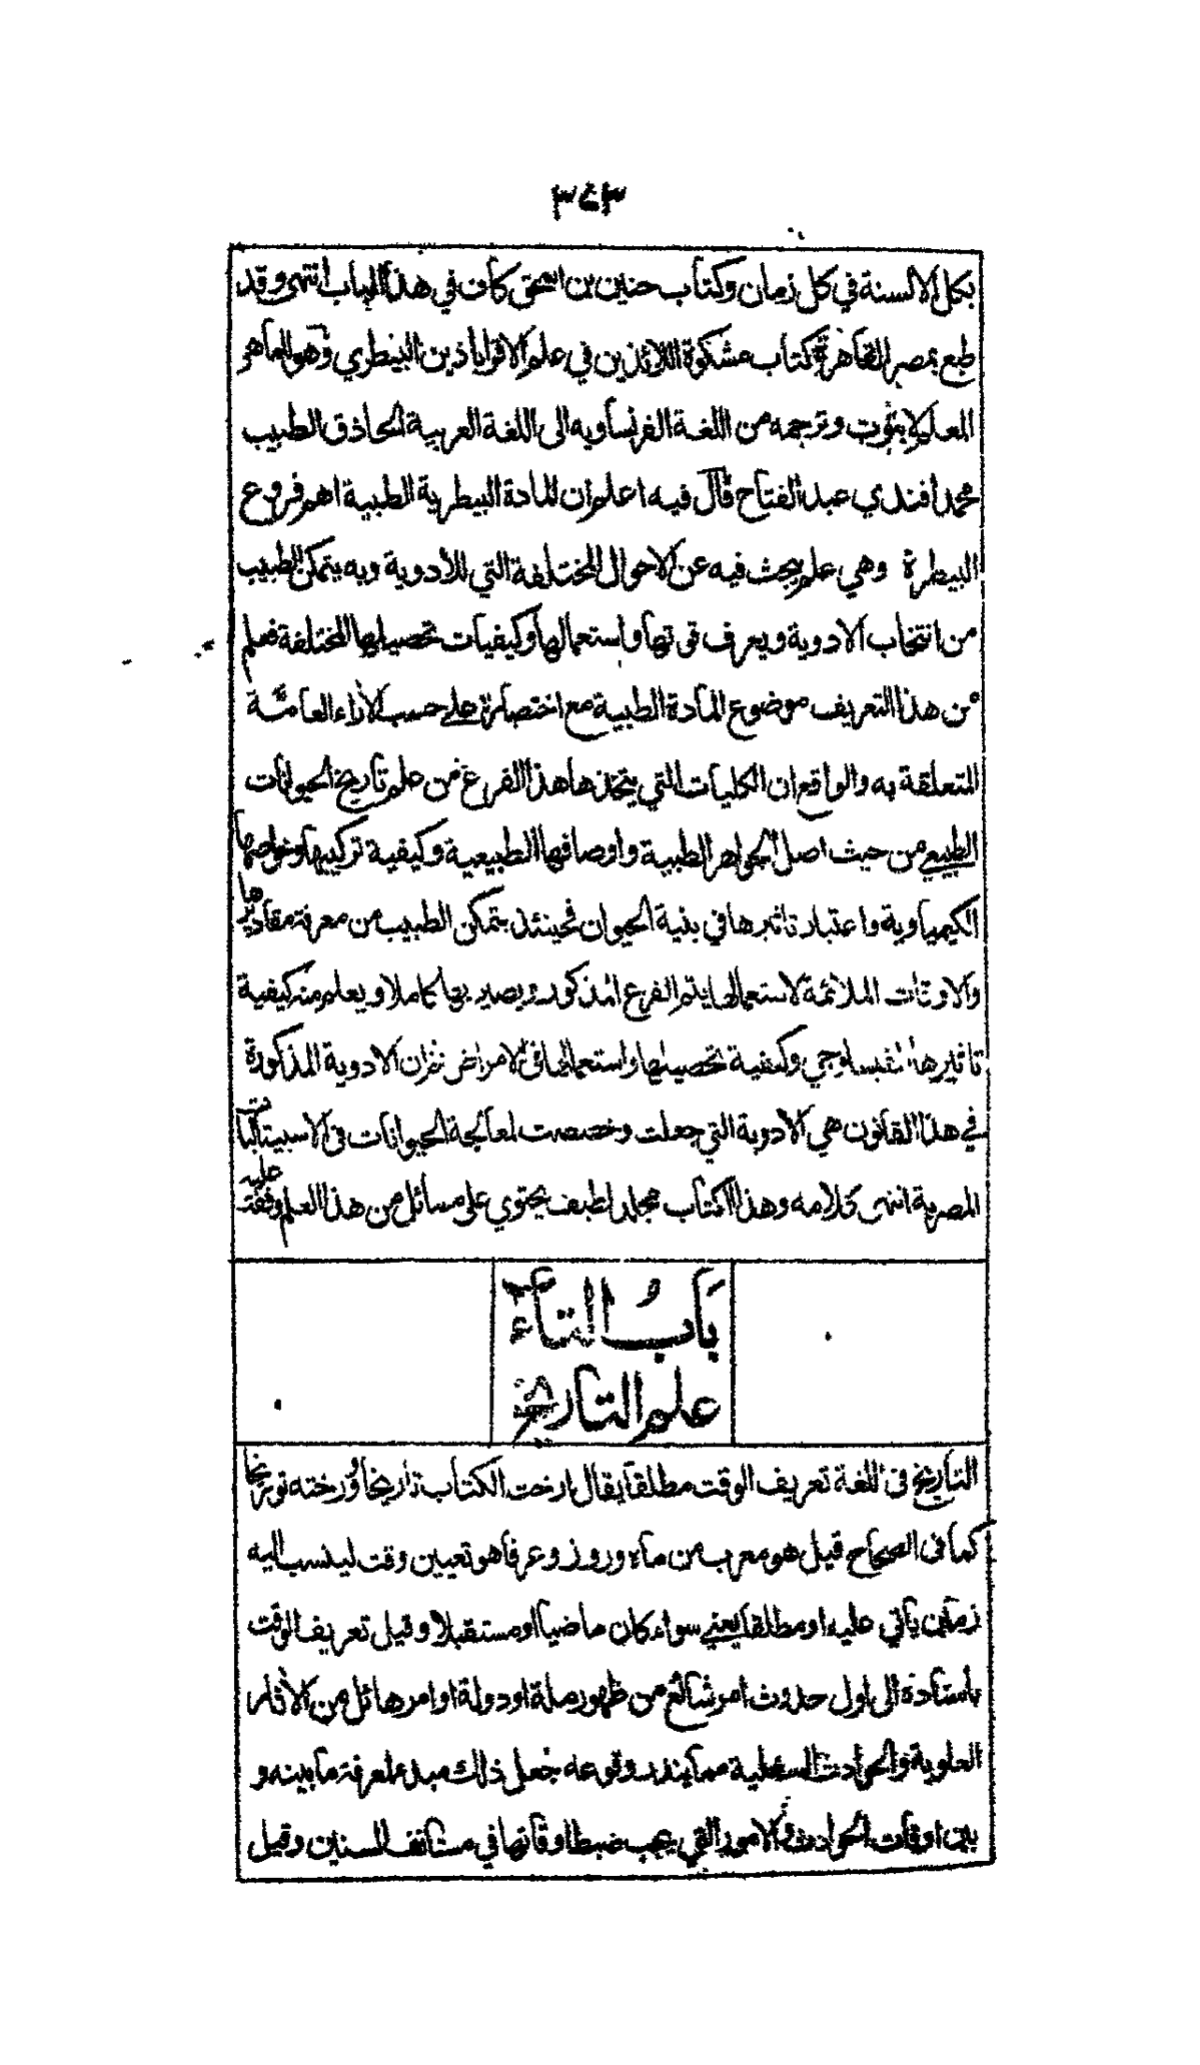 ٣٤٣
بكل الالسنة في كل زمان وكتاب حنين بن اسحق كاف في هذا الباب انتهى وقد
طبع بمصر القاهرة كتاب مشكوة اللائذين في علم الاقراباذين البيطري وهو للماهر
المعلم لابتوت وترجمه من اللغة الفرنساويه الى اللغة العربية الحاذق الطبيب
محمد افندي عبد الفتاح قال فيه اعلم ان المادة البيطرية الطبية اهم فروع
البيطرة وهي علم يبحث فيه عن الاحوال المختلفة التي للأدوية وبه يتمكن الطبيب
من انتخاب الادوية ويعرف قوتها واستعمالها وكيفيات تحصيلها المختلفة فعلم
من هذا التعريف موضوع المادة الطبية مع اختصاره على حسب الآراء العامة
المتعلقة به والواقع ان الكليات التي يتخذها هذا الفرع من علم تاريخ الحيوانات
الطبيعي من حيث اصل الجواهر الطبية واوصافها الطبيعية وكيفية تركيبها وخواصها
الكيمياوية واعتبار تاثيرها في بنية الحيوان فحينئذ يتمكن الطبيب من معرفة مقاديرها
والاوقات الملائمة لاستعمالها يتم الفرع المذكور ويصير بها كاملا ويعلم منه كيفية
تاثيرها الفيسلوجي وكيفية تحصيلها واستعمالها في الامراض ثم ان الادوية المذكورة
في هذا القانون هي الادوية التي جعلت وخصصت لمعالجة الحيوانات في الاسبيتاليات
المصرية انتهى كلامه وهذا الكتاب مجلد لطيف يحتوي على مسائل من هذا العلم وقفت عليه
باب التاء
علم التاريخ
التاريخ في اللغة تعريف الوقت مطلقا يقال ارخت الكتاب تأريخا وورخته توريخا
كما في الصحاح قيل هو معرب من ماه وروز وعرفا هو تعيين وقت لينسب اليه
زمان يأتي عليه او مطلقا يعني سواء كان ماضيا او مستقبلا وقيل تعريف الوقت
باسناده الى اول حدوث امر شائع من ظهور ملة او دولة او امر هائل من الآثار
العلوية والحوادث السفلية مما يندر وقوعه جعل ذلك مبدء لمعرفة ما بينه و
بين اوقات الحوادث والامور التي يجب ضبط اوقاتها في مستانف السنين وقيل